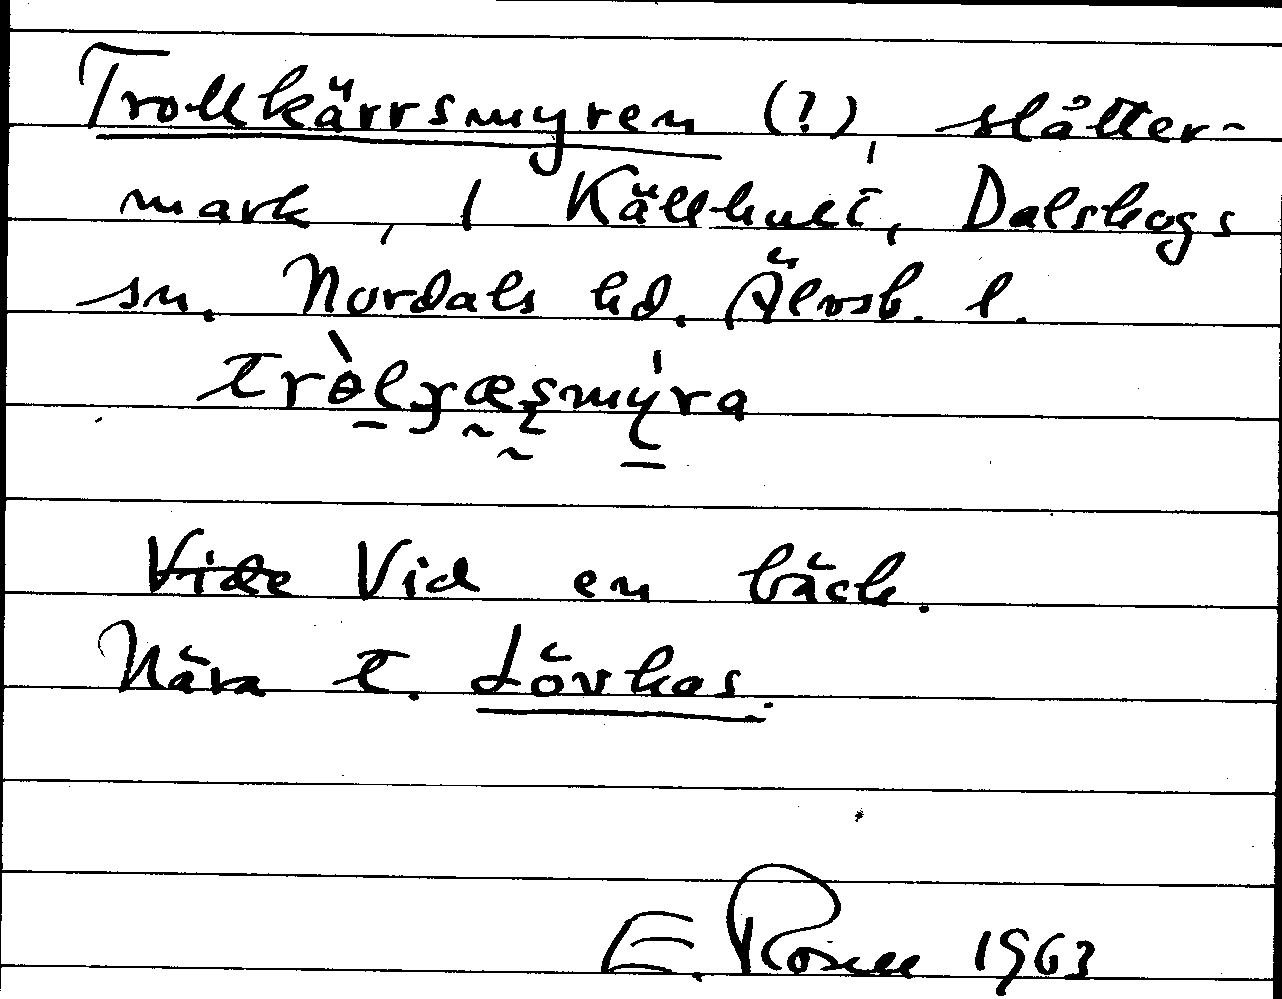 Trollkärrsmyren (?), slåtter-
mark, i Källhult, Dalskogs
sn. Nordals hd. Älvsb. l.
Vide Vid en bäck.
Nära t. Lövkas.
E. Rosell 1963